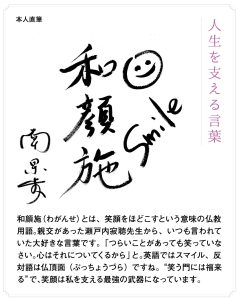 本人直筆
人生を支える言葉
和顔施
Smile
南果歩
和顔施(わがんせ)とは、笑顔をほどこすという意味の仏教
用語。親交があった瀬戸内寂聴先生から、いつも言われて
いた大好きな言葉です。「つらいことがあっても笑っていな
さい。心はそれについてくるから」と。英語ではスマイル、反
対語は仏頂面(ぶっちょうづら)ですね。“笑う門には福来
る”で、笑顔は私を支える最強の武器になっています。